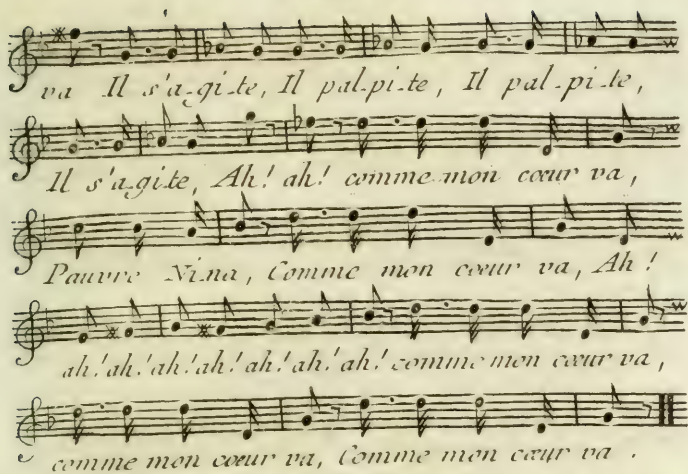 va Il s'a-gi-te, Il pal-pi-te, Il pal-pi-te,
Il s'a-gi-te, Ah! ah! comme mon cœur va,
Pauvre Ni-na, Comme mon cœur va, Ah!
ah! ah! ah! ah! ah! ah! ah! comme mon cœur va,
comme mon cœur va, Comme mon cœur va.